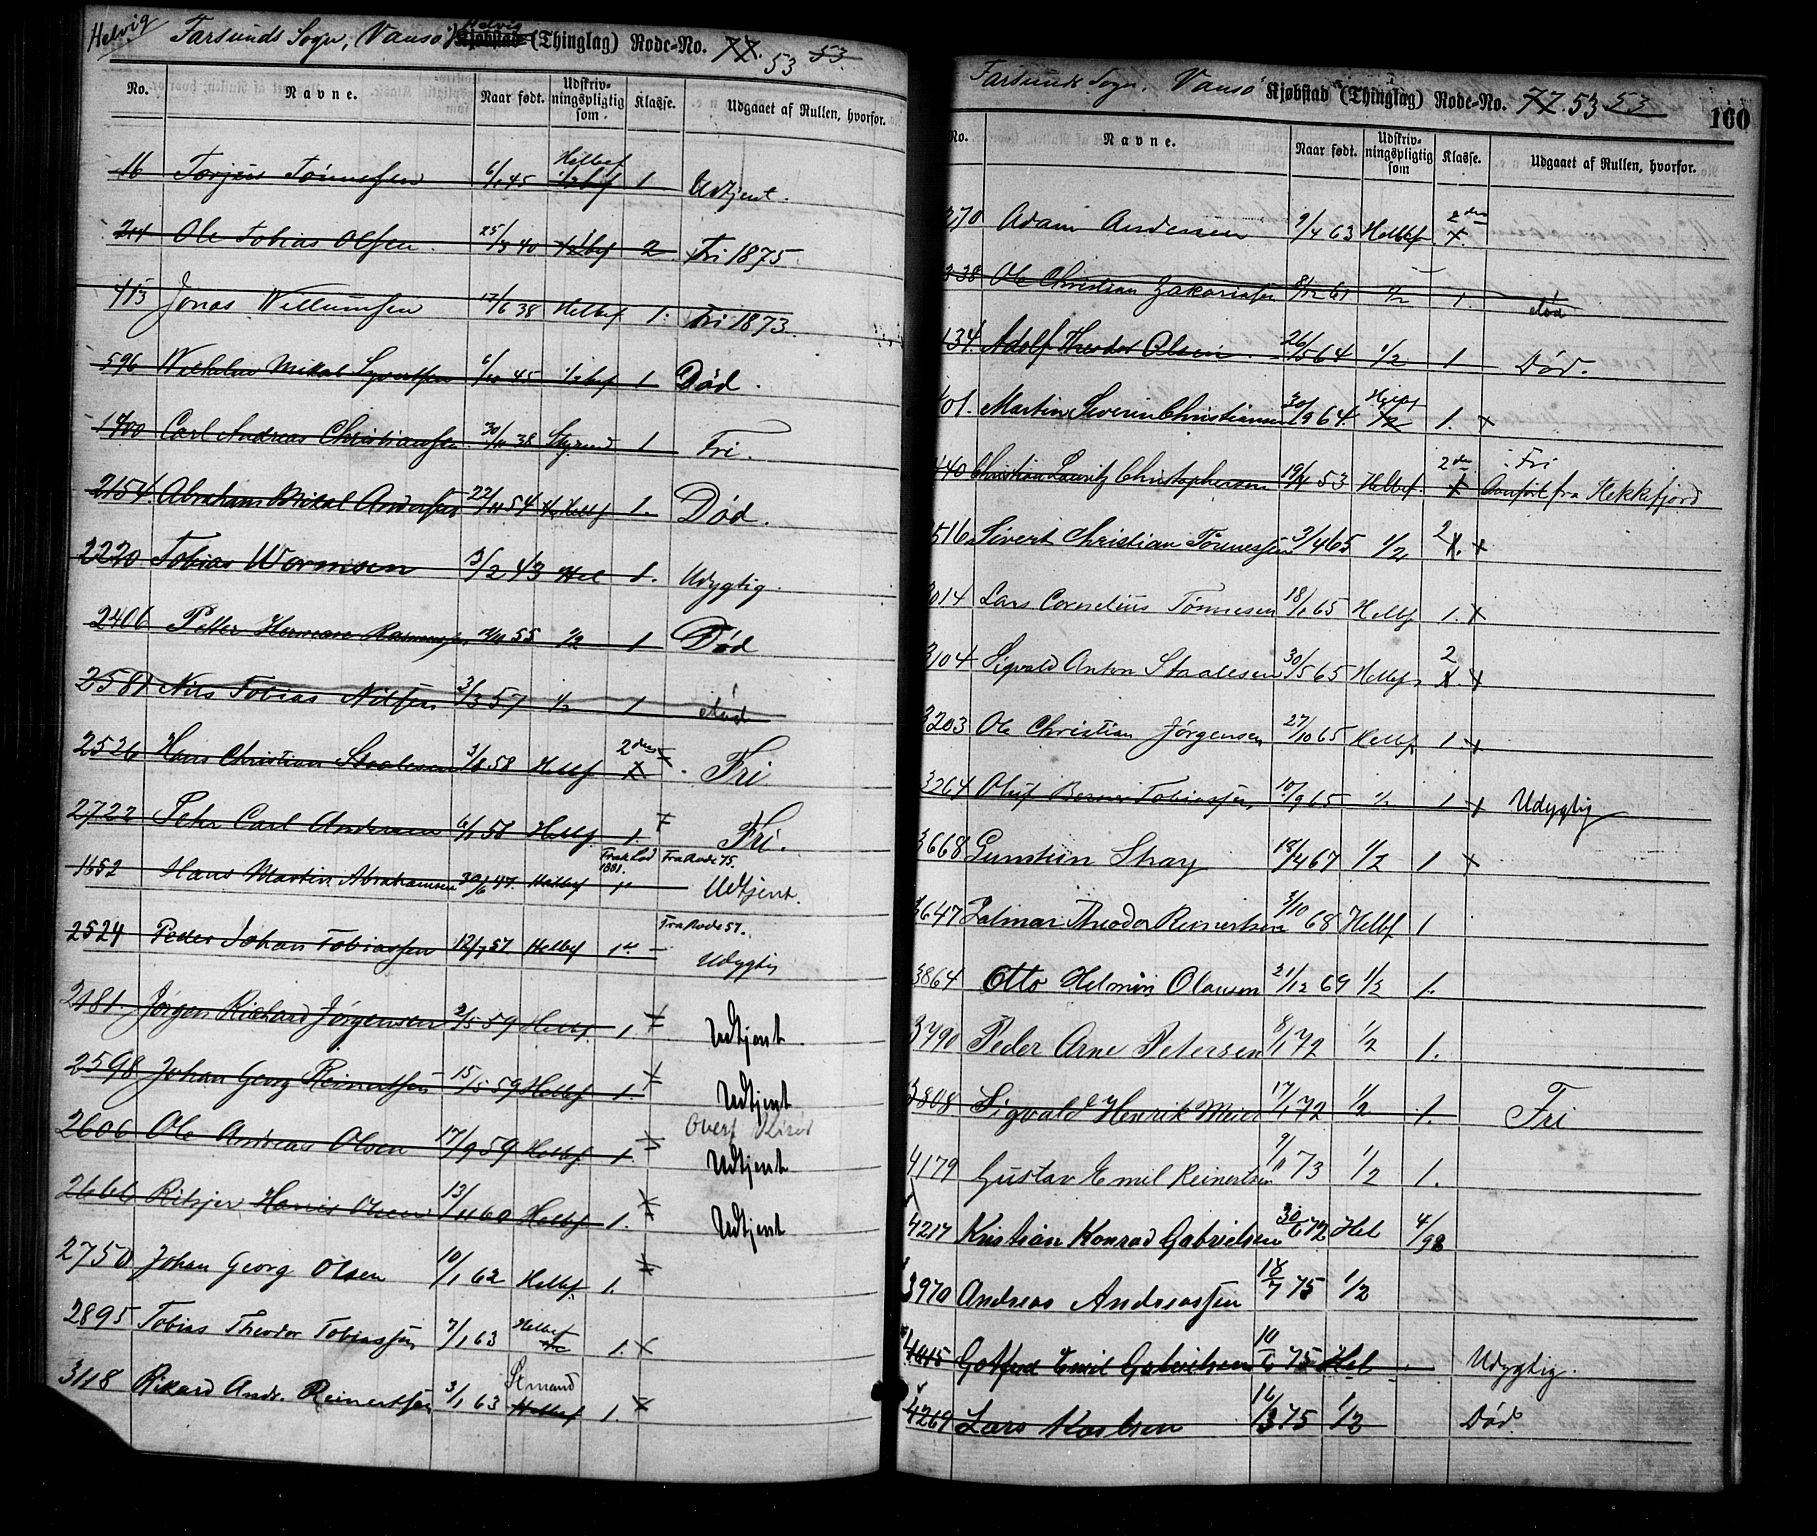 Helvig Farsunds Sogn, Vansø Helvig Kjøbstad (Thinglag) Rode-No. 77. 53 53.
No. Navne. Naar født. Udskriv-ningspligtig som Klasse. Udgaaet af Rullen, hvorfor.
16 Torjus Tønnessen 6/1 45 Helbef 1/2 bef 1 Udtjent.
244 Ole Tobias Olsen. 25/8 40 1/2 bef 2 Fri 1875
413 Jonas Willumsen 17/6 38 Helbef 1. Fri 1873.
596 Wilhelm Mikal Syvertsen 6/10 45 1/2 bef 1 Død.
1400 Carl Andreas Christiansen 30/11 38 Styrmd 1 Fri.
2154. Abraham Mikal Andersen 22/11 54 Helbf 1. Død.
2220 Tobias Wormsen 3/2 43 Hel 1. Udygtig.
2406 Peter Herman Rasmussen 55 1/2 1 Død
2581 Nils Tobias Nilsen 3/3 57 1/2 1 död
2526 Hans Christian Staalesen 3/8 58 Helbf 2den Fri
2722 Pehr Carl Andersen 6/1 58 Helbf. 1. Fri.
1652 Hans Martin Abrahamsen 30/6 47. Helbef 1881. Fra Rode 75. Udtjent.
2524 Peder Johan Tobiassen 12/7 57. Helbef 1 Fra Rode 57. Udygtig
2481. Jørgen Richard Jørgensen 2/5 59 Helbf. 1. Udtjent
2598 Johan Georg Reinertsen 15/5 59 Helbef 1. Udtjent
2606 Ole Andreas Olsen 17/9 59 Helbf 1. Overf Udtjent
2666 Olsen 13/11 60 Helbf 1. Udtjent
2750 Johan Georg Olsen 10/1 62 Helbf. 1.
2895 Tobias Theodor Tobiassen 7/1 63 Helbef 1. x
3118 Rikard Andr. Reinertsen 3/1 63 Stmand Helbef 1. x
Farsunds Sogn. Vansø Kjøbstad (Thinglag) Rode-No. 77. 53 53 160
No. Navne. Naar født. Udskriv-ningspligtig som Klasse. Udgaaet af Rullen, hvorfor.
270 Adam Andersen 9/4 63 Helbef 2den
338 Ole Christian Zakariasen 8/12 61 1/2 1. död
134. Adolf Theodor Olsen. 26/5 64 1/2 1 Død.
401. Martin Severin Christiansen 30/9 64. 1/2 1. x
440 Christian Lauritz Christophersen 19/4 53 Helbef. 2den Fri Overført fra Hekkefjord
516 Sivert Christian Tønnessen 3/4 65 1/2 2 1. x
3014 Lars Cornelius Tønnesen 18/1 65 Helbf 1. x
3104 Sigvald Anton Staalesen 30/5 65 Helbef 2 1. x
3203 Ole Christian Jørgensen 27/10 65 Helbf 1 x
3264 Oluf Tobiassen 10/9 65 1/2 1 x Udygtig
3668 Gunstein Stray 18/4 67 1/2 1 x
3647 Zalmar Theodor Reinertsen 3/10 68 Helbf 1
3864 Otto Helmin Olausen 21/12 69 1/2 1.
3790 Peder Arne Petersen 8/1 72 1/2 1.
3808 Sigvald Henrik Meier 17/1 72 1/2 1. Fri
4179 Gustav Emil Reinertsen 9/11 73 1/2 1.
4217 Kristian Konrad Gabrielsen 30/6 72 Hel 4/98
3970 Andreas Andreassen 18/7 75 1/2
4415 Gotfred Emil Gabrielsen 10/6 75 Hel Udygtig.
4269 Lars Karlsen 16/3 75 1/2 Död